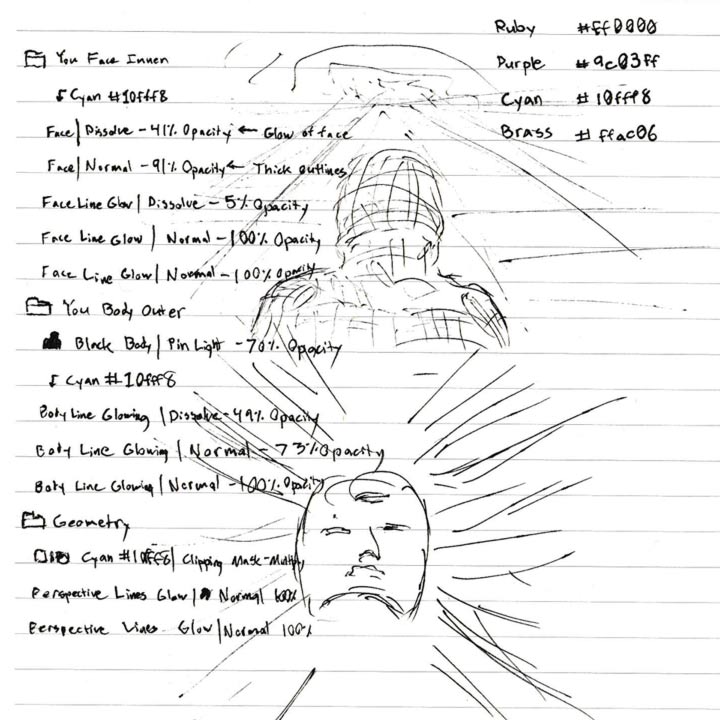 Ruby #ff0000
Purple #9c03ff
Cyan #10fff8
Brass #ffac06
You Face Inner
Cyan #10fff8
Face | Dissolve - 41% Opacity ← Glow of face
Face | Normal - 91% Opacity ← Thick outlines
Face Line Glow | Dissolve - 5% Opacity
Face Line Glow | Normal - 100% Opacity
Face Line Glow | Normal - 100% Opacity
You Body Outer
Black Body | Pin Light - 70% Opacity
Cyan #10fff8
Body Line Glowing | Dissolve - 49% Opacity
Body Line Glowing | Normal - 73% Opacity
Body Line Glowing | Normal - 100% Opacity
Geometry
Cyan #10fff8 | Clipping Mask - Multiply
Perspective Lines Glow | Normal 100%
Perspective Lines Glow | Normal 100%